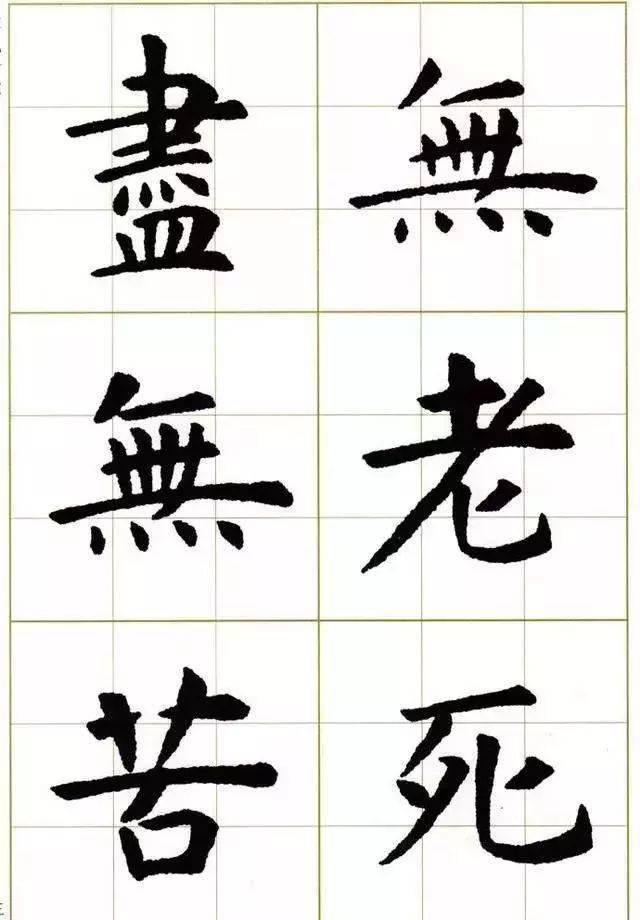 無老死
盡無苦